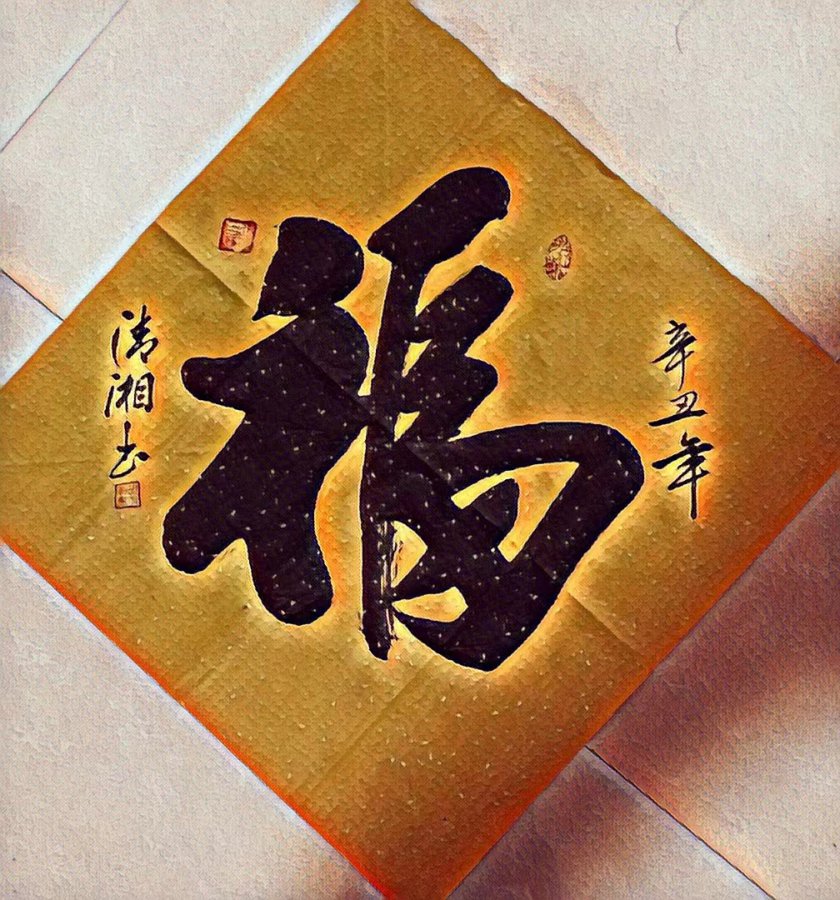 辛丑年
福
清湘书